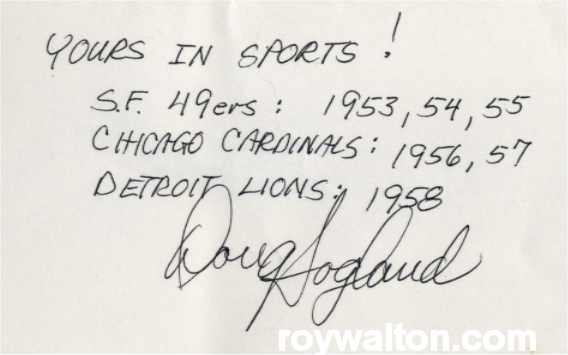 YOURS IN SPORTS!
S.F. 49ers: 1953, 54, 55
CHICAGO CARDINALS: 1956, 57
DETROIT LIONS: 1958
Doug Hogland
roywalton.com